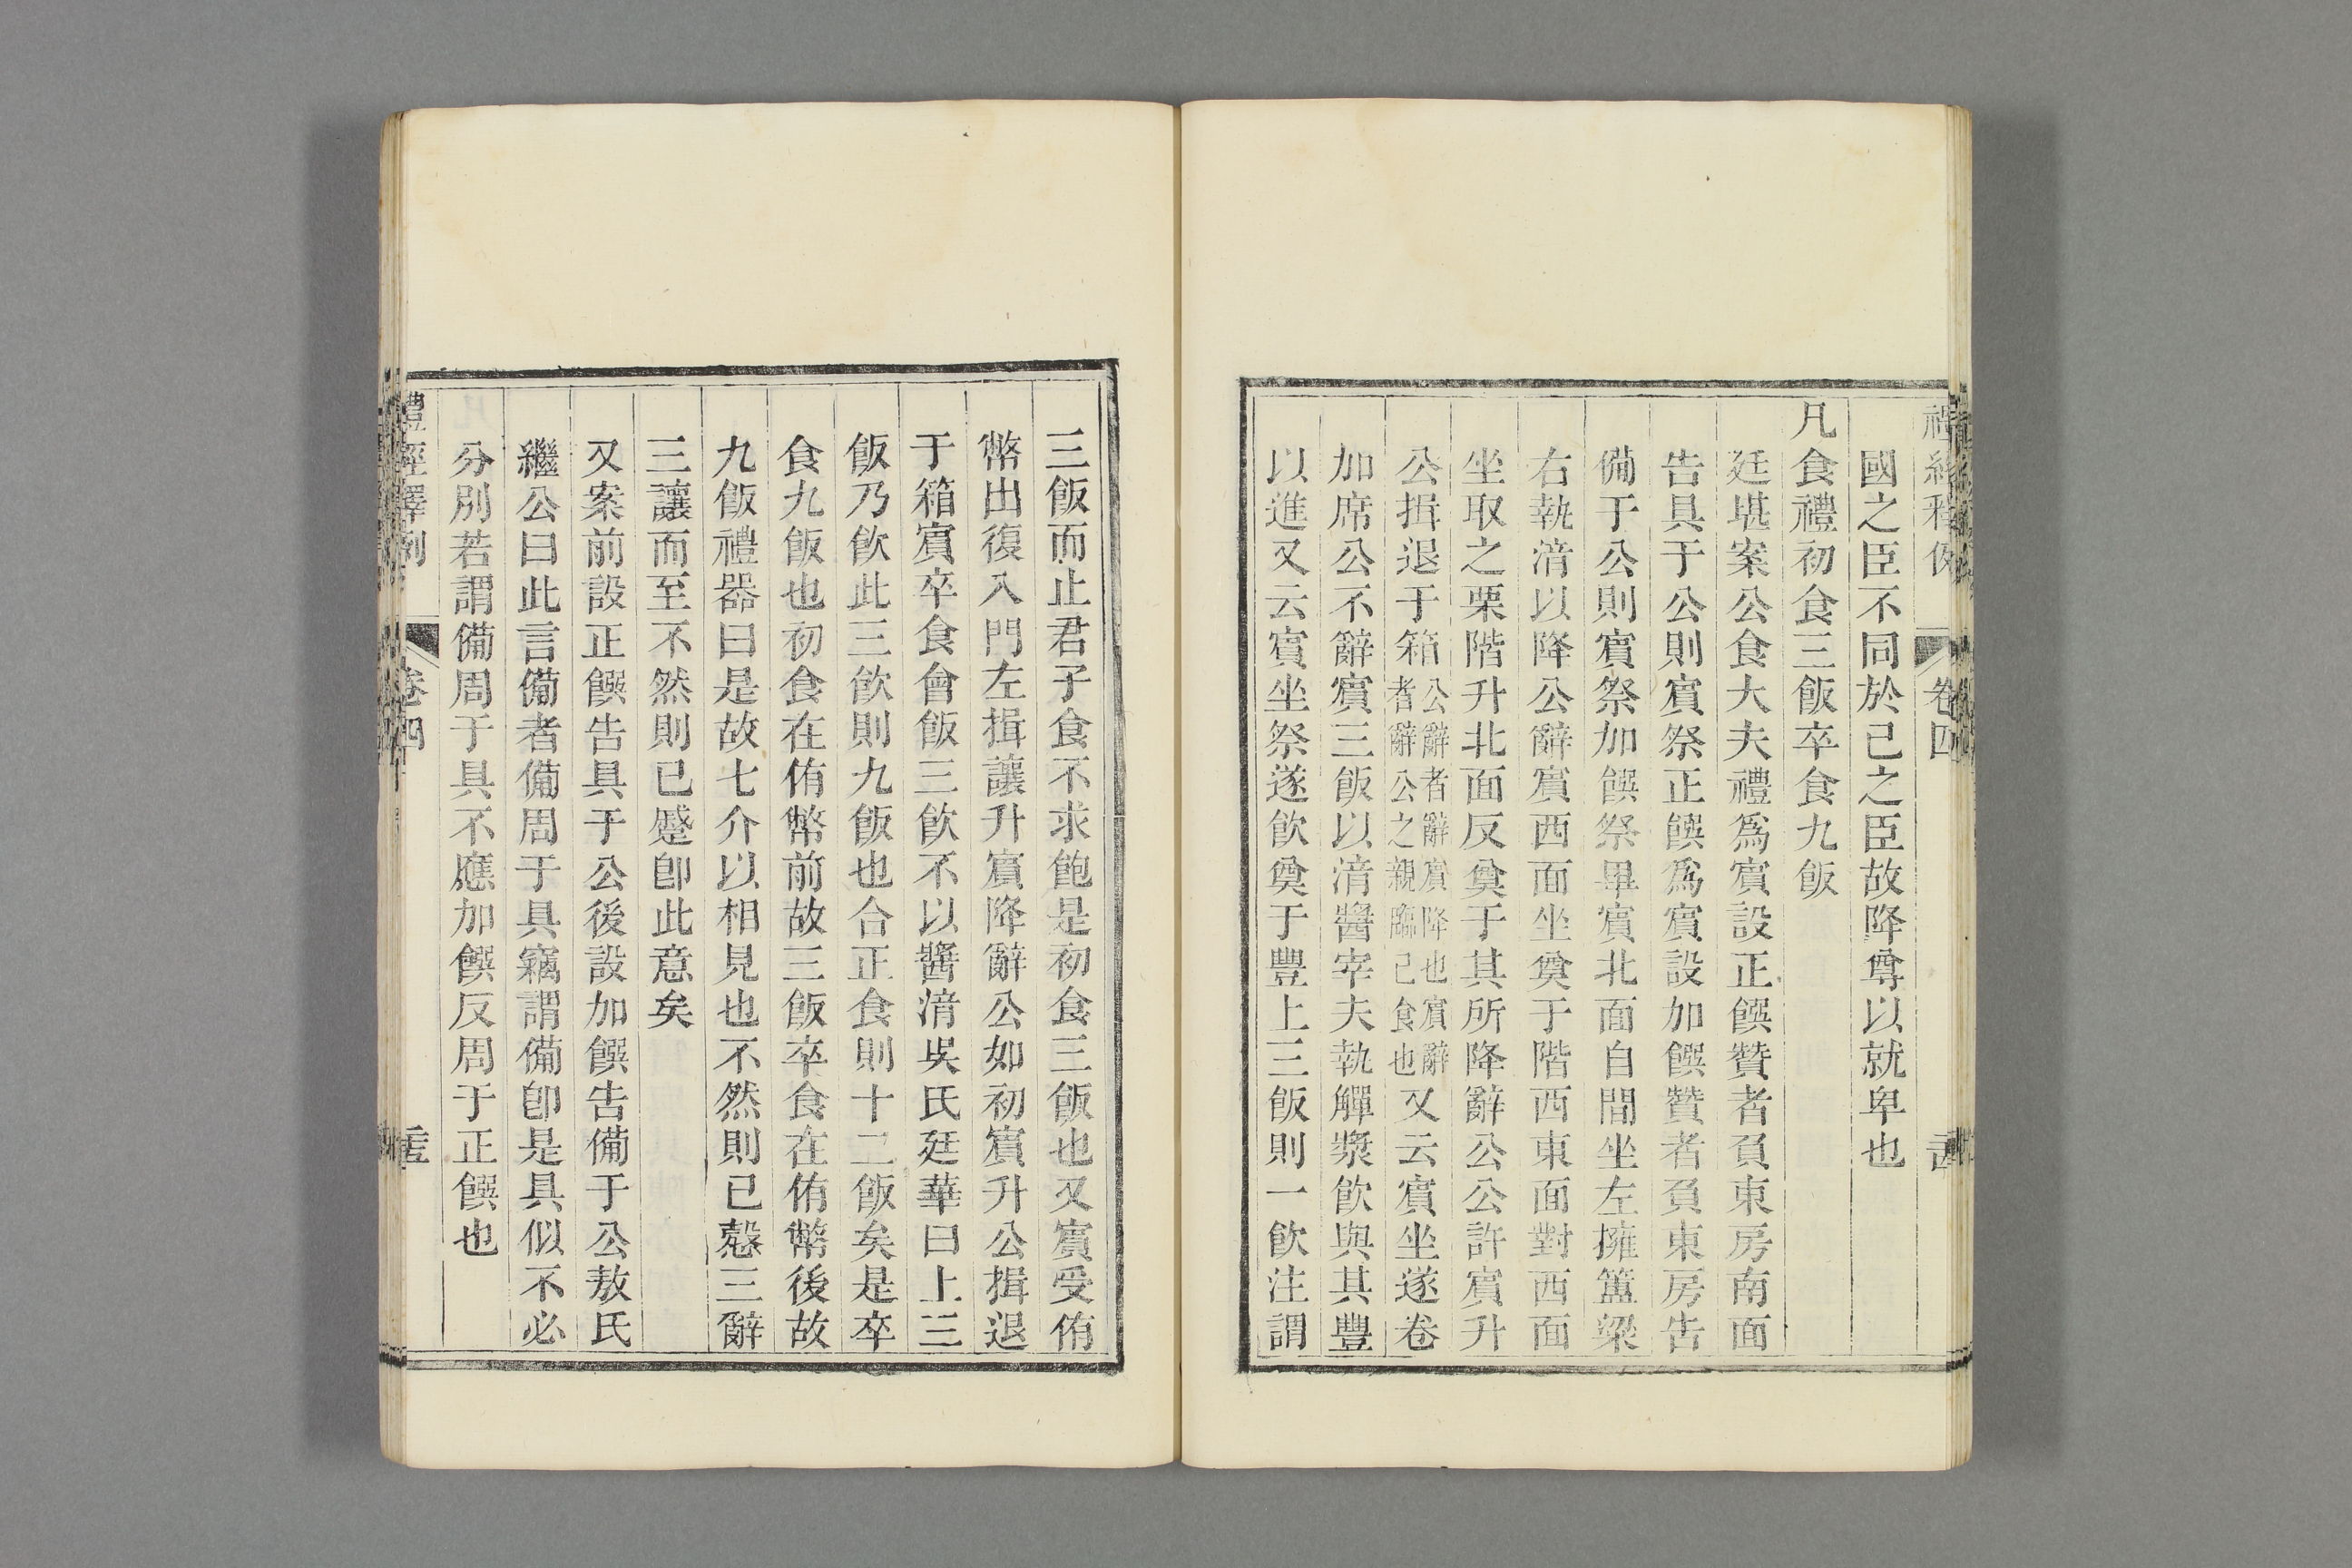 國之臣不同於己之臣故降尊以就卑也
凡食禮初食三飯卒食九飯
廷堪案公食大夫禮爲賓設正饌贊者負東房南面
告具于公則賓祭正饌爲賓設加饌贊者負東房告
備于公則賓祭加饌祭畢賓北面自間坐左擁簠粱
右執湆以降公辭賓西面坐奠于階西東面對西面
坐取之栗階升北面反奠于其所降辭公公許賓升
公揖退于箱公辭者辭賓降也賓辭者辭公之親臨己食也又云賓坐遂卷
加席公不辭賓三飯以湆醬宰夫執觶漿飮與其豐
以進又云賓坐祭遂飮奠于豐上三飯則一飮注謂
三飯而止君子食不求飽是初食三飯也又賓受侑
幣出復入門左揖讓升賓降辭公如初賓升公揖退
于箱賓卒食會飯三飮不以醬湆吳氏廷華曰上三
飯乃飮此三飮則九飯也合正食則十二飯矣是卒
食九飯也初食在侑幣前故三飯卒食在侑幣後故
九飯禮器曰是故七介以相見也不然則已慤三辭
三讓而至不然則已蹙卽此意矣
又案前設正饌告具于公後設加饌告備于公敖氏
繼公曰此言備者備周于具竊謂備卽是具似不必
分別若謂備周于具不應加饌反周于正饌也
禮經釋例 卷四